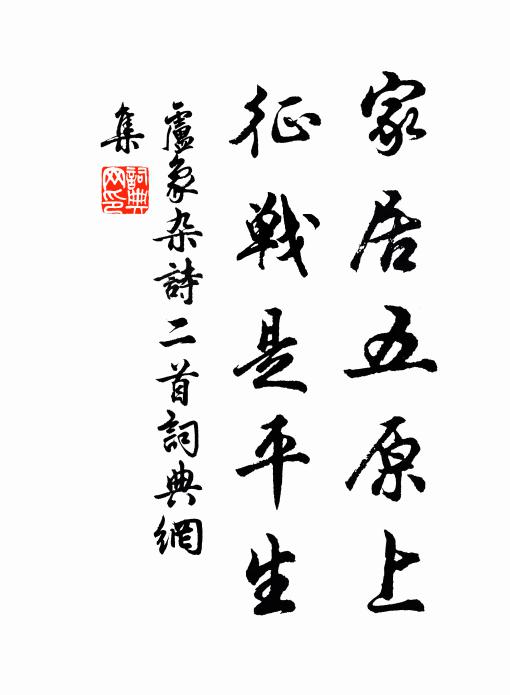 家居五原上
征戰是平生
盧象杂詩二首詞典網
集
詞典
网印